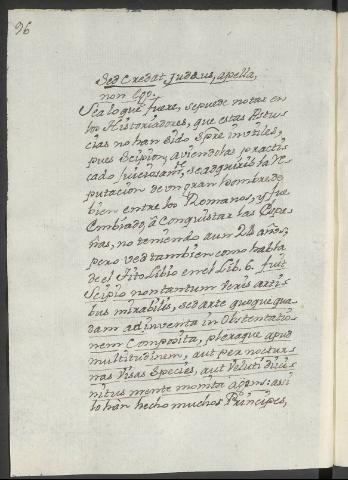 96
Sed Credat Judæus, apella,
non Ego.
Sea loque fuere, se puede notar en
los Historiadores, que estas Astu
cias no han sido Spre inutiles,
pues Scipion, aviendolas practi
cado juiciosam.te, se adquirió la re
putacion de un gran hombre de
bien entre los Romanos, y fue
Embiado, â Conquistar las Espa
ñas, no teniendo aun 24 años;
pero ved tambien como habla
de el Tito Libio en el Lib. 6. fuit
Scipio non tantum veris arti
bus mirabilis, sed arte quoque qua
dam adinventa in Obstentatio
nem Composita, pleraque apud
multitudinem, aut per noctur
nas Visas Species, aut Veluti divi
nitus mente monita agens: assi
lo hàn hecho muchos Principes,